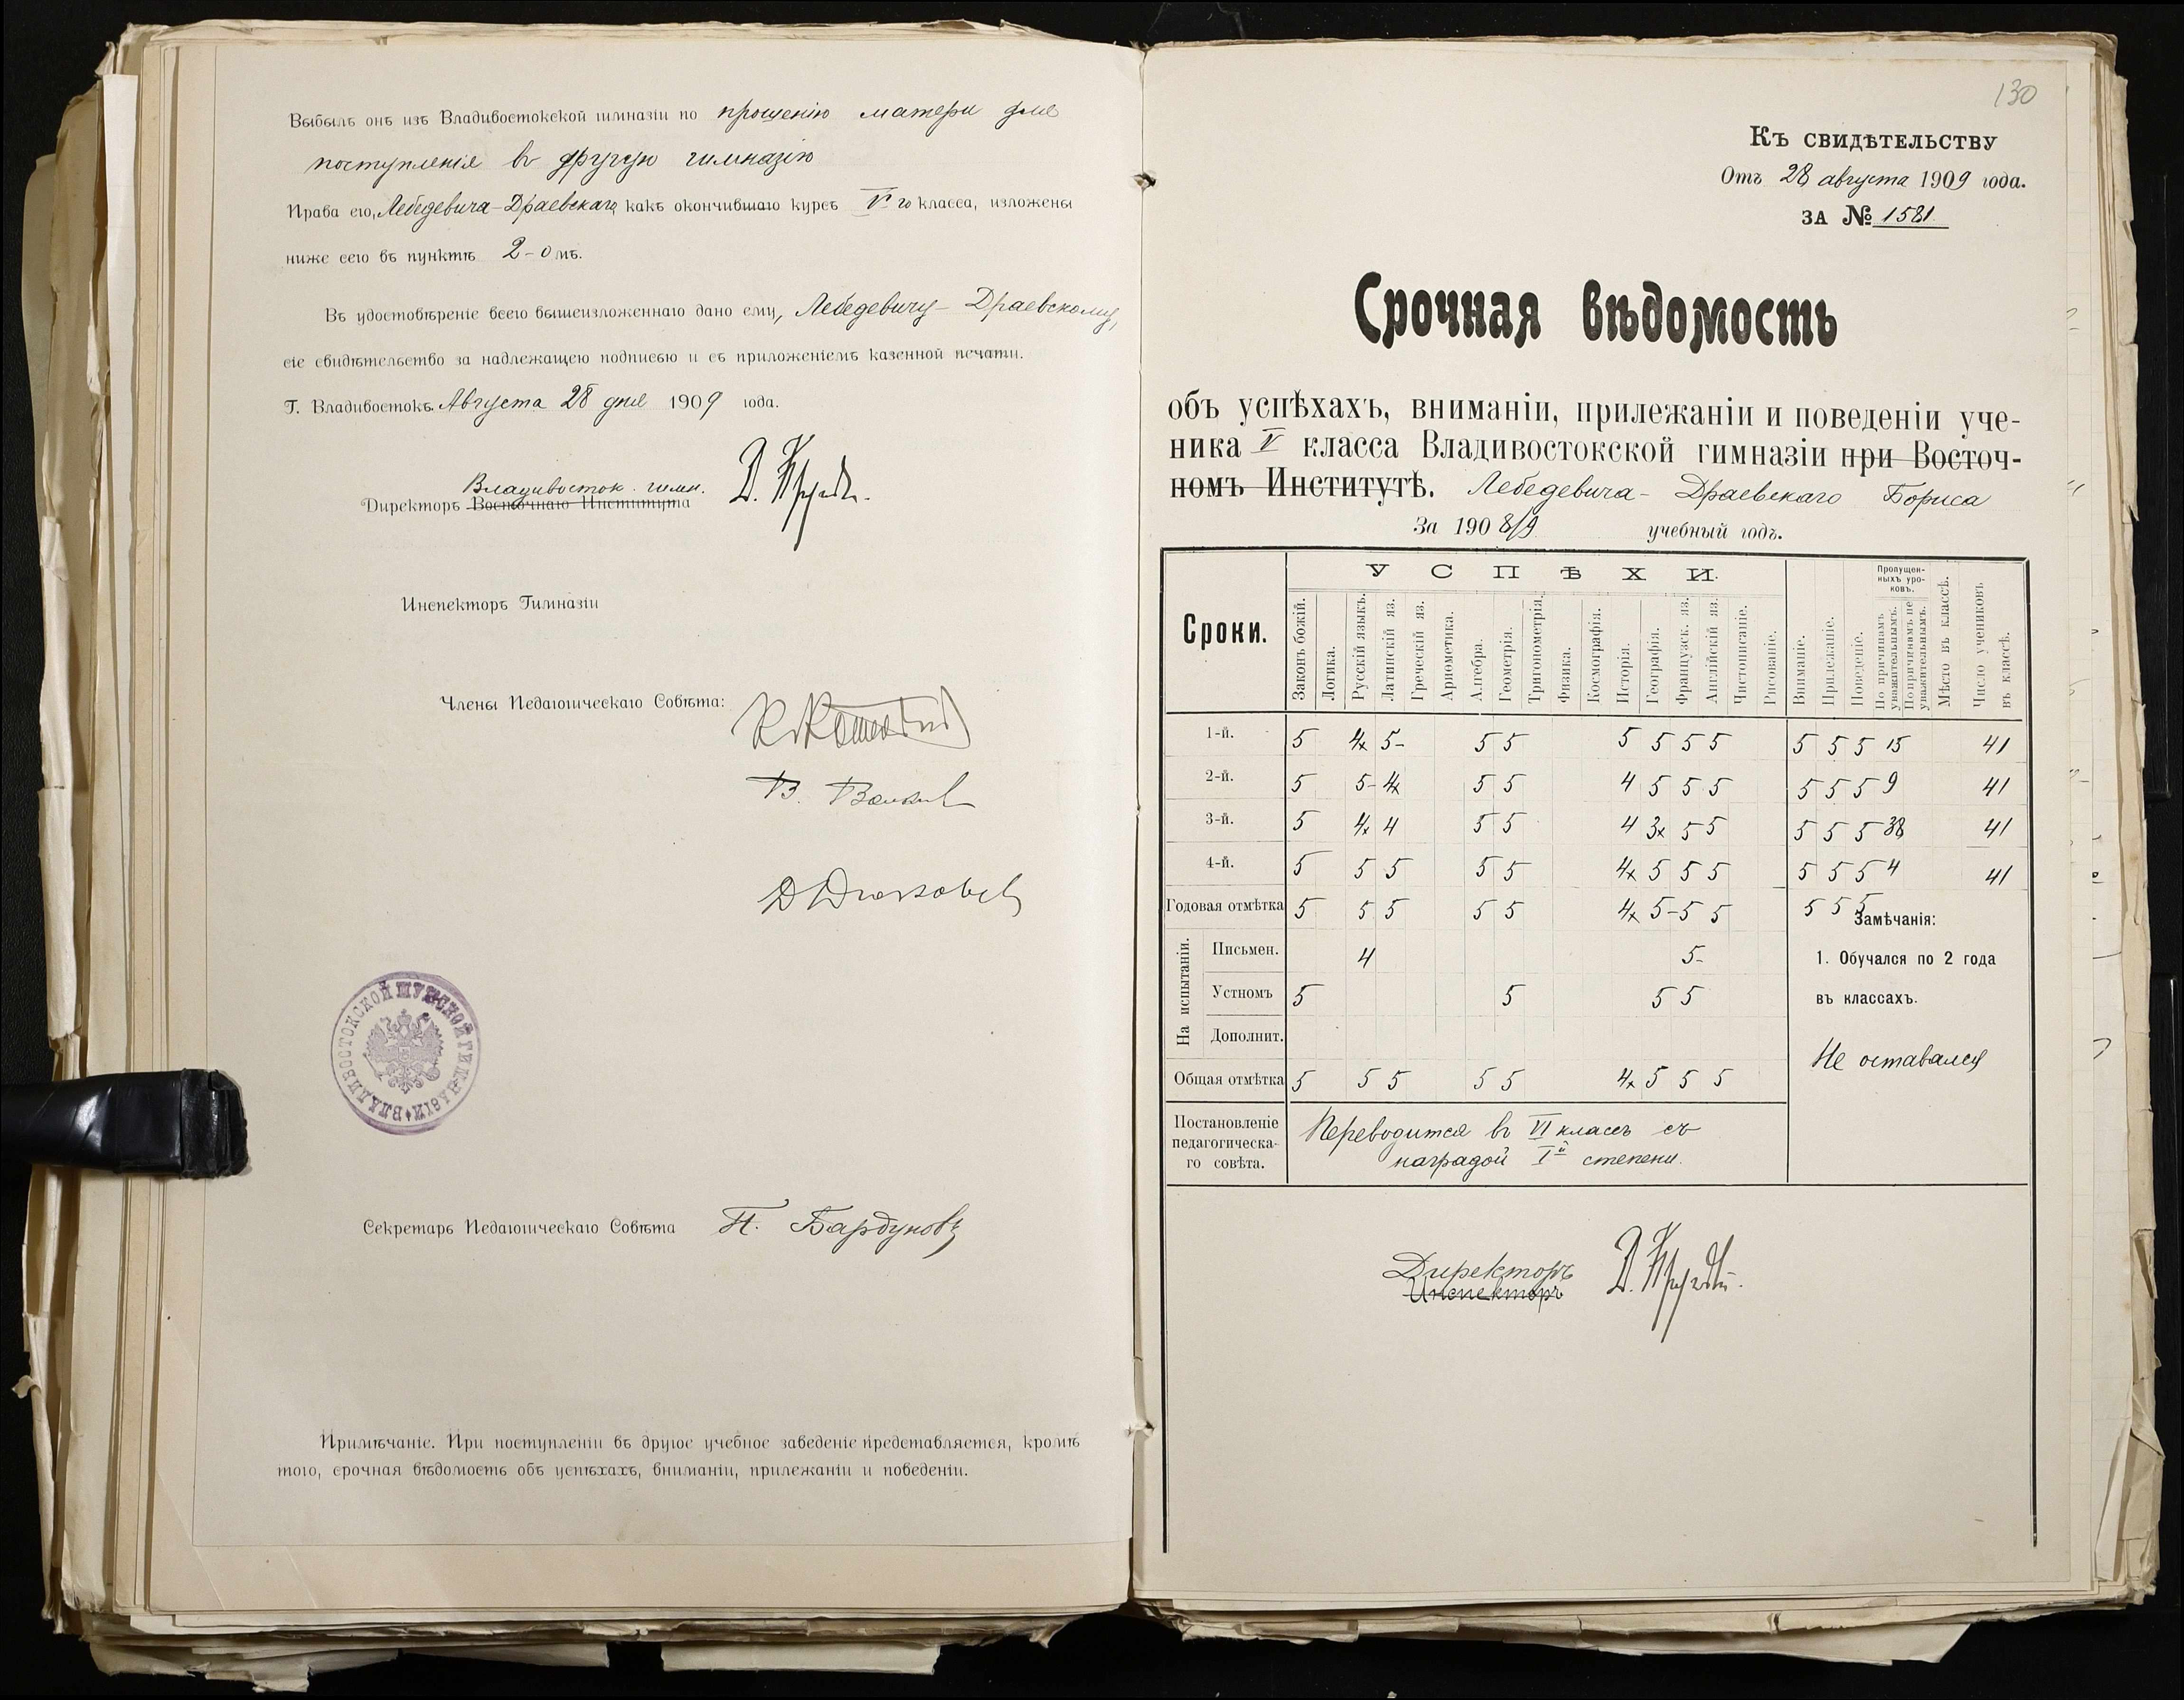 Выбылъ онъ изъ Владивостокской гимназіи по прошенію матери для
поступленія въ другую гимназію
Права его, Лебедевича-Драевскаго, какъ окончившаго курсъ V го класса, изложены
ниже сего въ пунктѣ 2-омъ.
Въ удостовѣреніе всего вышеизложеннаго дано ему, Лебедевичу-Драевскому,
сіе свидѣтельство за надлежащею подписью и съ приложеніемъ казенной печати.
Г. Владивостокъ. Августа 28 дня 1909 года.
Владивосток. гимн.
Директоръ Восточнаго Института
Инспекторъ Гимназіи
Члены Педагогическаго Совѣта:
ВЛАДИВОСТОКСКОЙ МУЖСКОЙ ГИМНАЗІИ
Секретарь Педагогическаго Совѣта П. Бардуновъ
Примѣчаніе. При поступленіи въ другое учебное заведеніе представляется, кромѣ
того, срочная вѣдомость объ успѣхахъ, вниманіи, прилежаніи и поведеніи.
130
Къ свидѣтельству
Отъ 28 августа 1909 года.
за № 1581
Срочная вѣдомость
объ успѣхахъ, вниманіи, прилежаніи и поведеніи уче-
ника V класса Владивостокской гимназіи при Восточ-
номъ Институтѣ. Лебедевича-Драевскаго Бориса
За 1908/9 учебный годъ.
Сроки.
УСПѢХИ.
Законъ божій.
Логика.
Русскій языкъ.
Латинскій яз.
Греческій яз.
Ариѳметика.
Алгебра.
Геометрія.
Тригонометрія.
Физика.
Космографія.
Исторія.
Географія.
Французск. яз.
Англійскій яз.
Чистописаніе.
Рисованіе.
Вниманіе.
Прилежаніе.
Поведеніе.
Пропущен-
ныхъ уро-
ковъ.
По причинамъ
уважительнымъ.
По причинамъ не
уважительнымъ.
Мѣсто въ классѣ.
Число учениковъ
въ классѣ.
1-й. 5 4x 5- 5 5 5 5 5 5 5 5 5 15 41
2-й. 5 5- 4x 5 5 4 5 5 5 5 5 5 9 41
3-й. 5 4x 4 5 5 4 3x 5 5 5 5 5 38 41
4-й. 5 5 5 5 5 4x 5 5 5 5 5 5 4 41
Годовая отмѣтка 5 5 5 5 5 4x 5- 5 5 5 5 5
На испытаніи.
Письмен. 4 5-
Устномъ 5 5 5 5
Дополнит.
Общая отмѣтка 5 5 5 5 5 4x 5 5 5
Замѣчанія:
1. Обучался по 2 года
въ классахъ.
Не оставался
Постановленіе
педагогическа-
го совѣта.
Переводится въ VI классъ съ
наградой I-й степени.
Директоръ
Инспекторъ